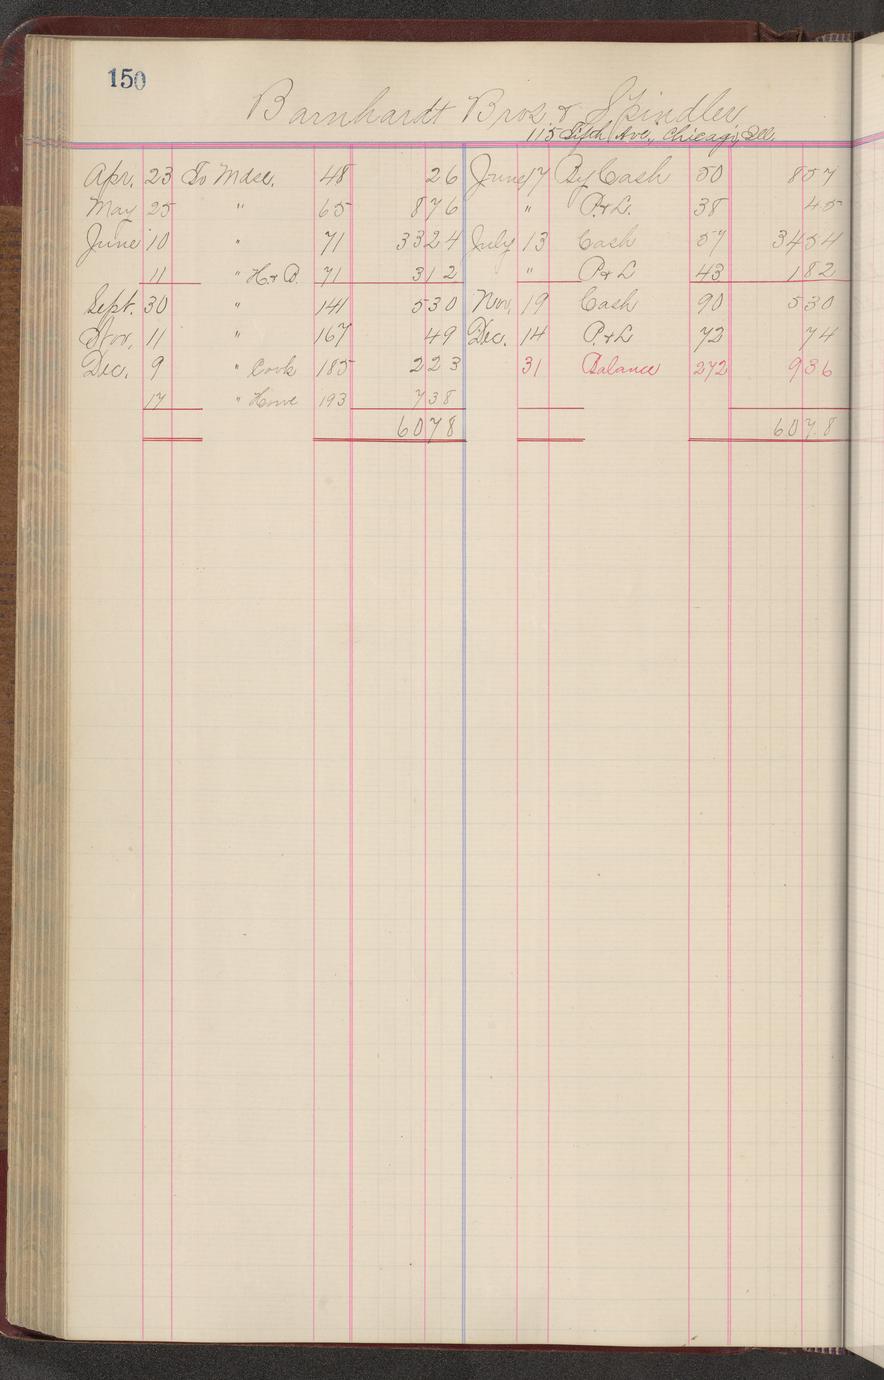 150
Barnhardt Bros. & Spindler
115 Fifth Ave., Chicago, Ill.
Apr. 23 To Mdse. 48 26 June 17 By Cash 50 857
May 25 " 65 876 " P. & L. 38 45
June 10 " 71 3324 July 13 Cash 57 3454
11 " H. & B. 71 312 " P. & L 43 182
Sept. 30 " 141 530 Nov. 19 Cash 90 530
Nov. 11 " 167 49 Dec. 14 P. & L 72 74
Dec. 9 " Cook 185 223 31 Balance 272 936
17 " Howe 193 738
6078 6078